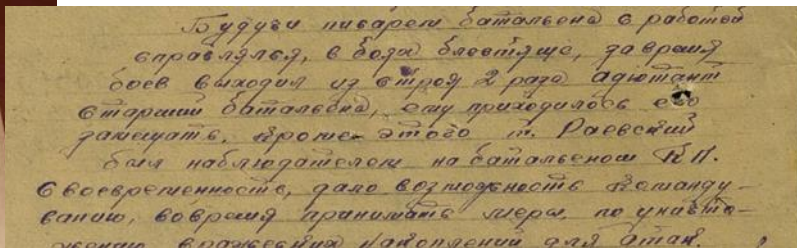 Будучи писарем батальена с работой
справлялся, в боях блестяще, за время
боев выходил из строя 2 раза адютант
старший батальена, ему приходилось его
замещать. Кроме этого т. Раевский
был наблюдателем на батальеном КП.
Своевременность, дало возможность Командо-
ванию, вовремя принимать меры, по уничто-
жению вражеских накоплений для атак.